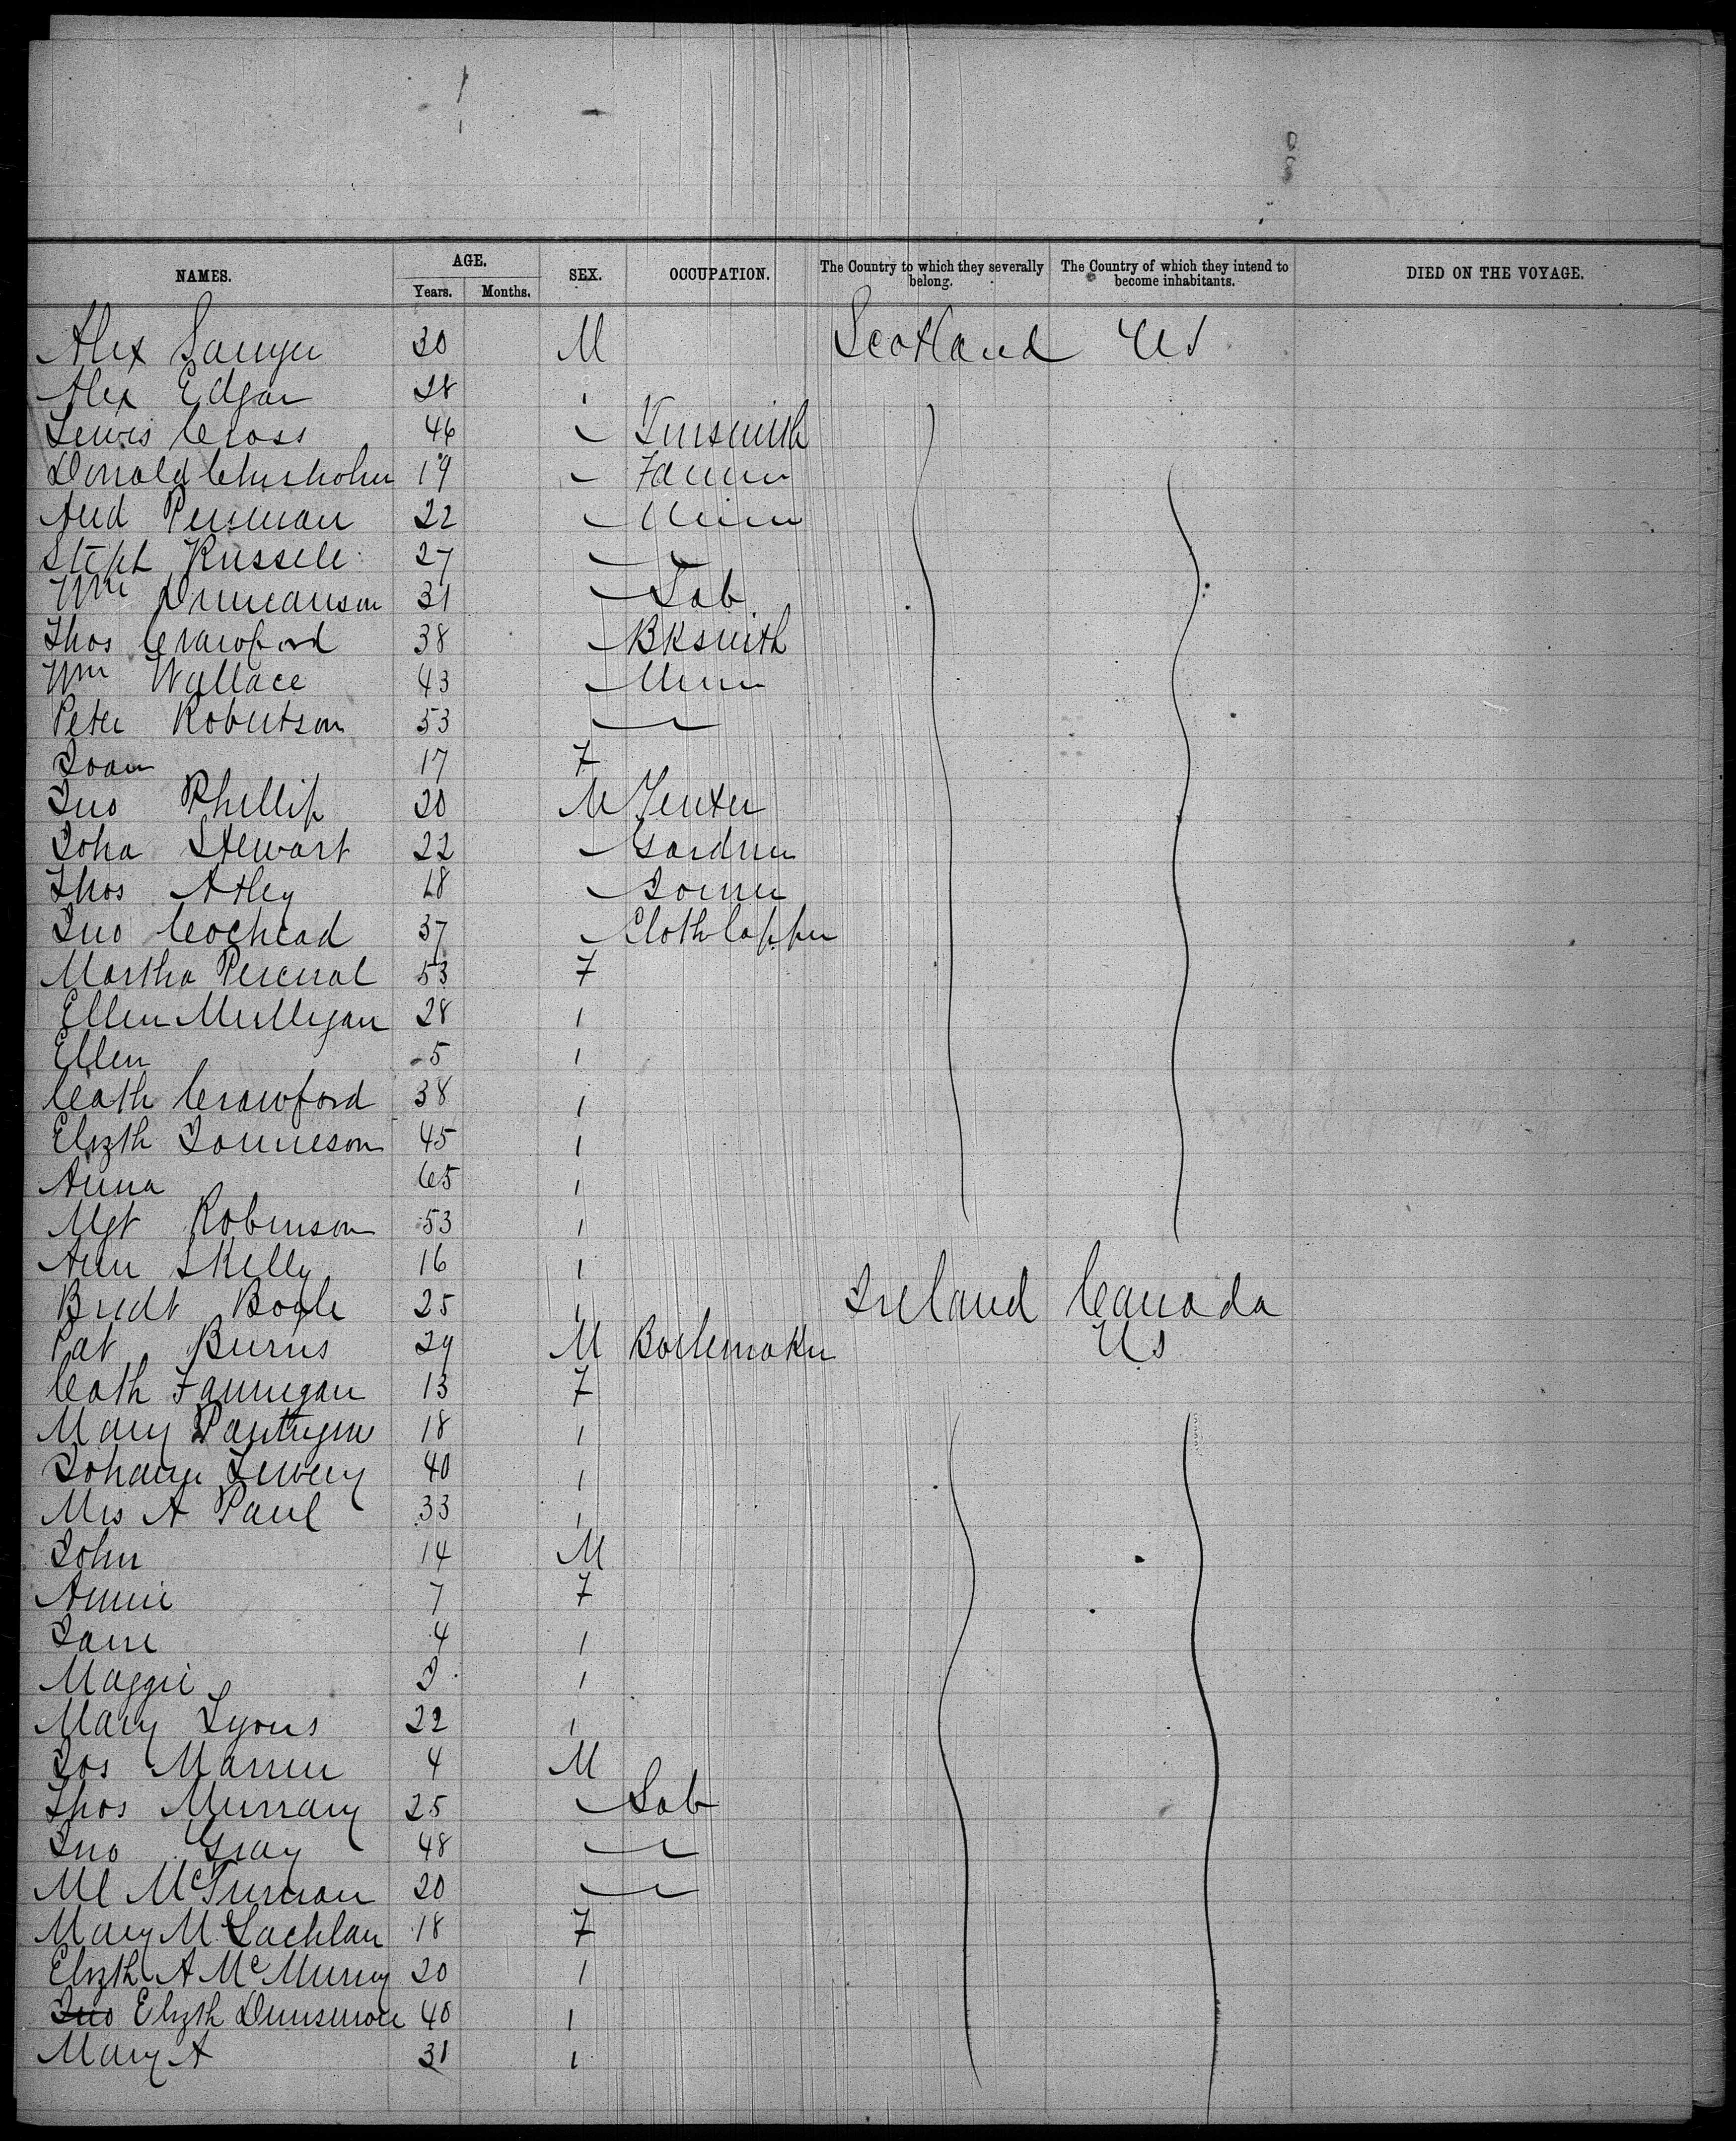 NAMES. AGE. SEX. OCCUPATION. The Country to which they severally belong. The Country of which they intend to become inhabitants. DIED ON THE VOYAGE.
Years. Months.
Alex 30 M Scotland US
Alex Edgar 28 "
Lewis Cross 46 " Tinsmith
Donald Chisholm 19 " Farmer
And 22 " Miner
Steph Russell 27 "
Wm Duncanson 31 " Lab
Thos Crawford 38 " Bksmith
Wm Wallace 43 " Miner
Peter Robertson 53 " "
Joan 17 F
Jno Phillip 20 M
John Stewart 22 " Gardner
Thos Atley 18 " Joiner
Jno Cochead 37 " Cloth lapper
Martha Percival 53 F
Ellen Mulligan 28 "
Ellen 5 "
Cath Crawford 38 "
Elizth Jamieson 45 "
Anna 65 "
Mgt Robinson 53 "
Ann Skelly 16 "
Bridt Bogle 25 " Ireland Canada
Pat Burns 29 M Boilemaker US
Cath Fannigan 13 F
Mary 18 "
Johanna 40 "
Mrs A Paul 33 "
John 14 M
Annie 7 F
Jane 4 "
Maggie 2 "
Mary Lyons 22 "
Jos 4 M
Thos Murrary 25 " Lab
Jno Gray 48 " "
Ml McTurnan 20 " "
Mary McLachlan 18 F
Elizth A McMurray 20 "
Jno Elizth Dunsmore 40 "
Mary A 31 "